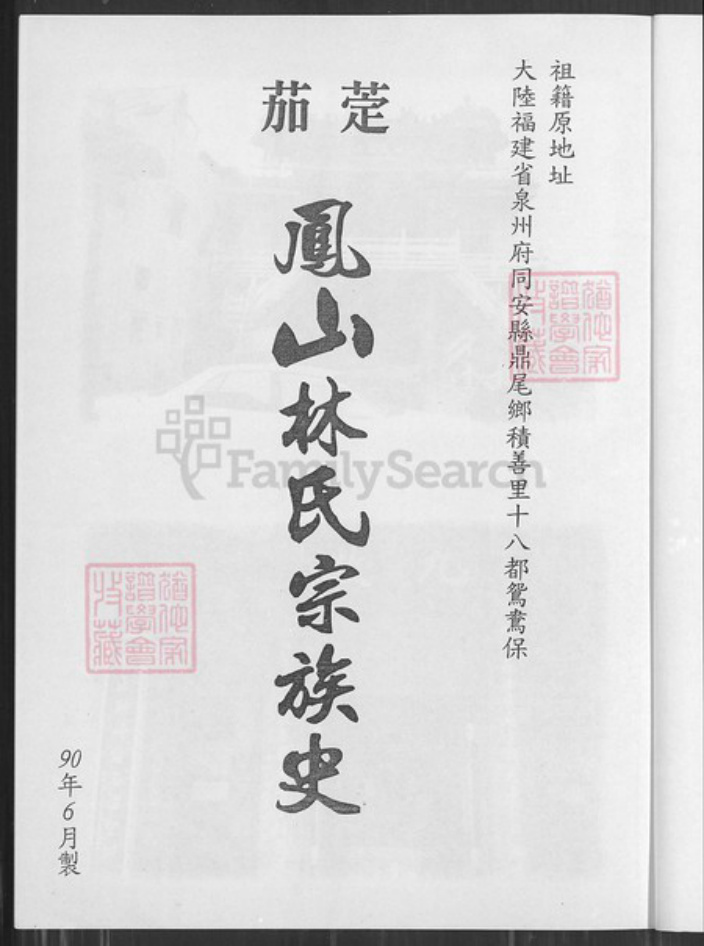 祖籍原地址
大陸福建省泉州府同安縣鼎尾鄉積善里十八都鴛鴦保
茄萣
鳳山林氏宗族史
90年6月製
猶他家
譜學會
收藏
猶他家
譜學會
收藏
FamilySearch